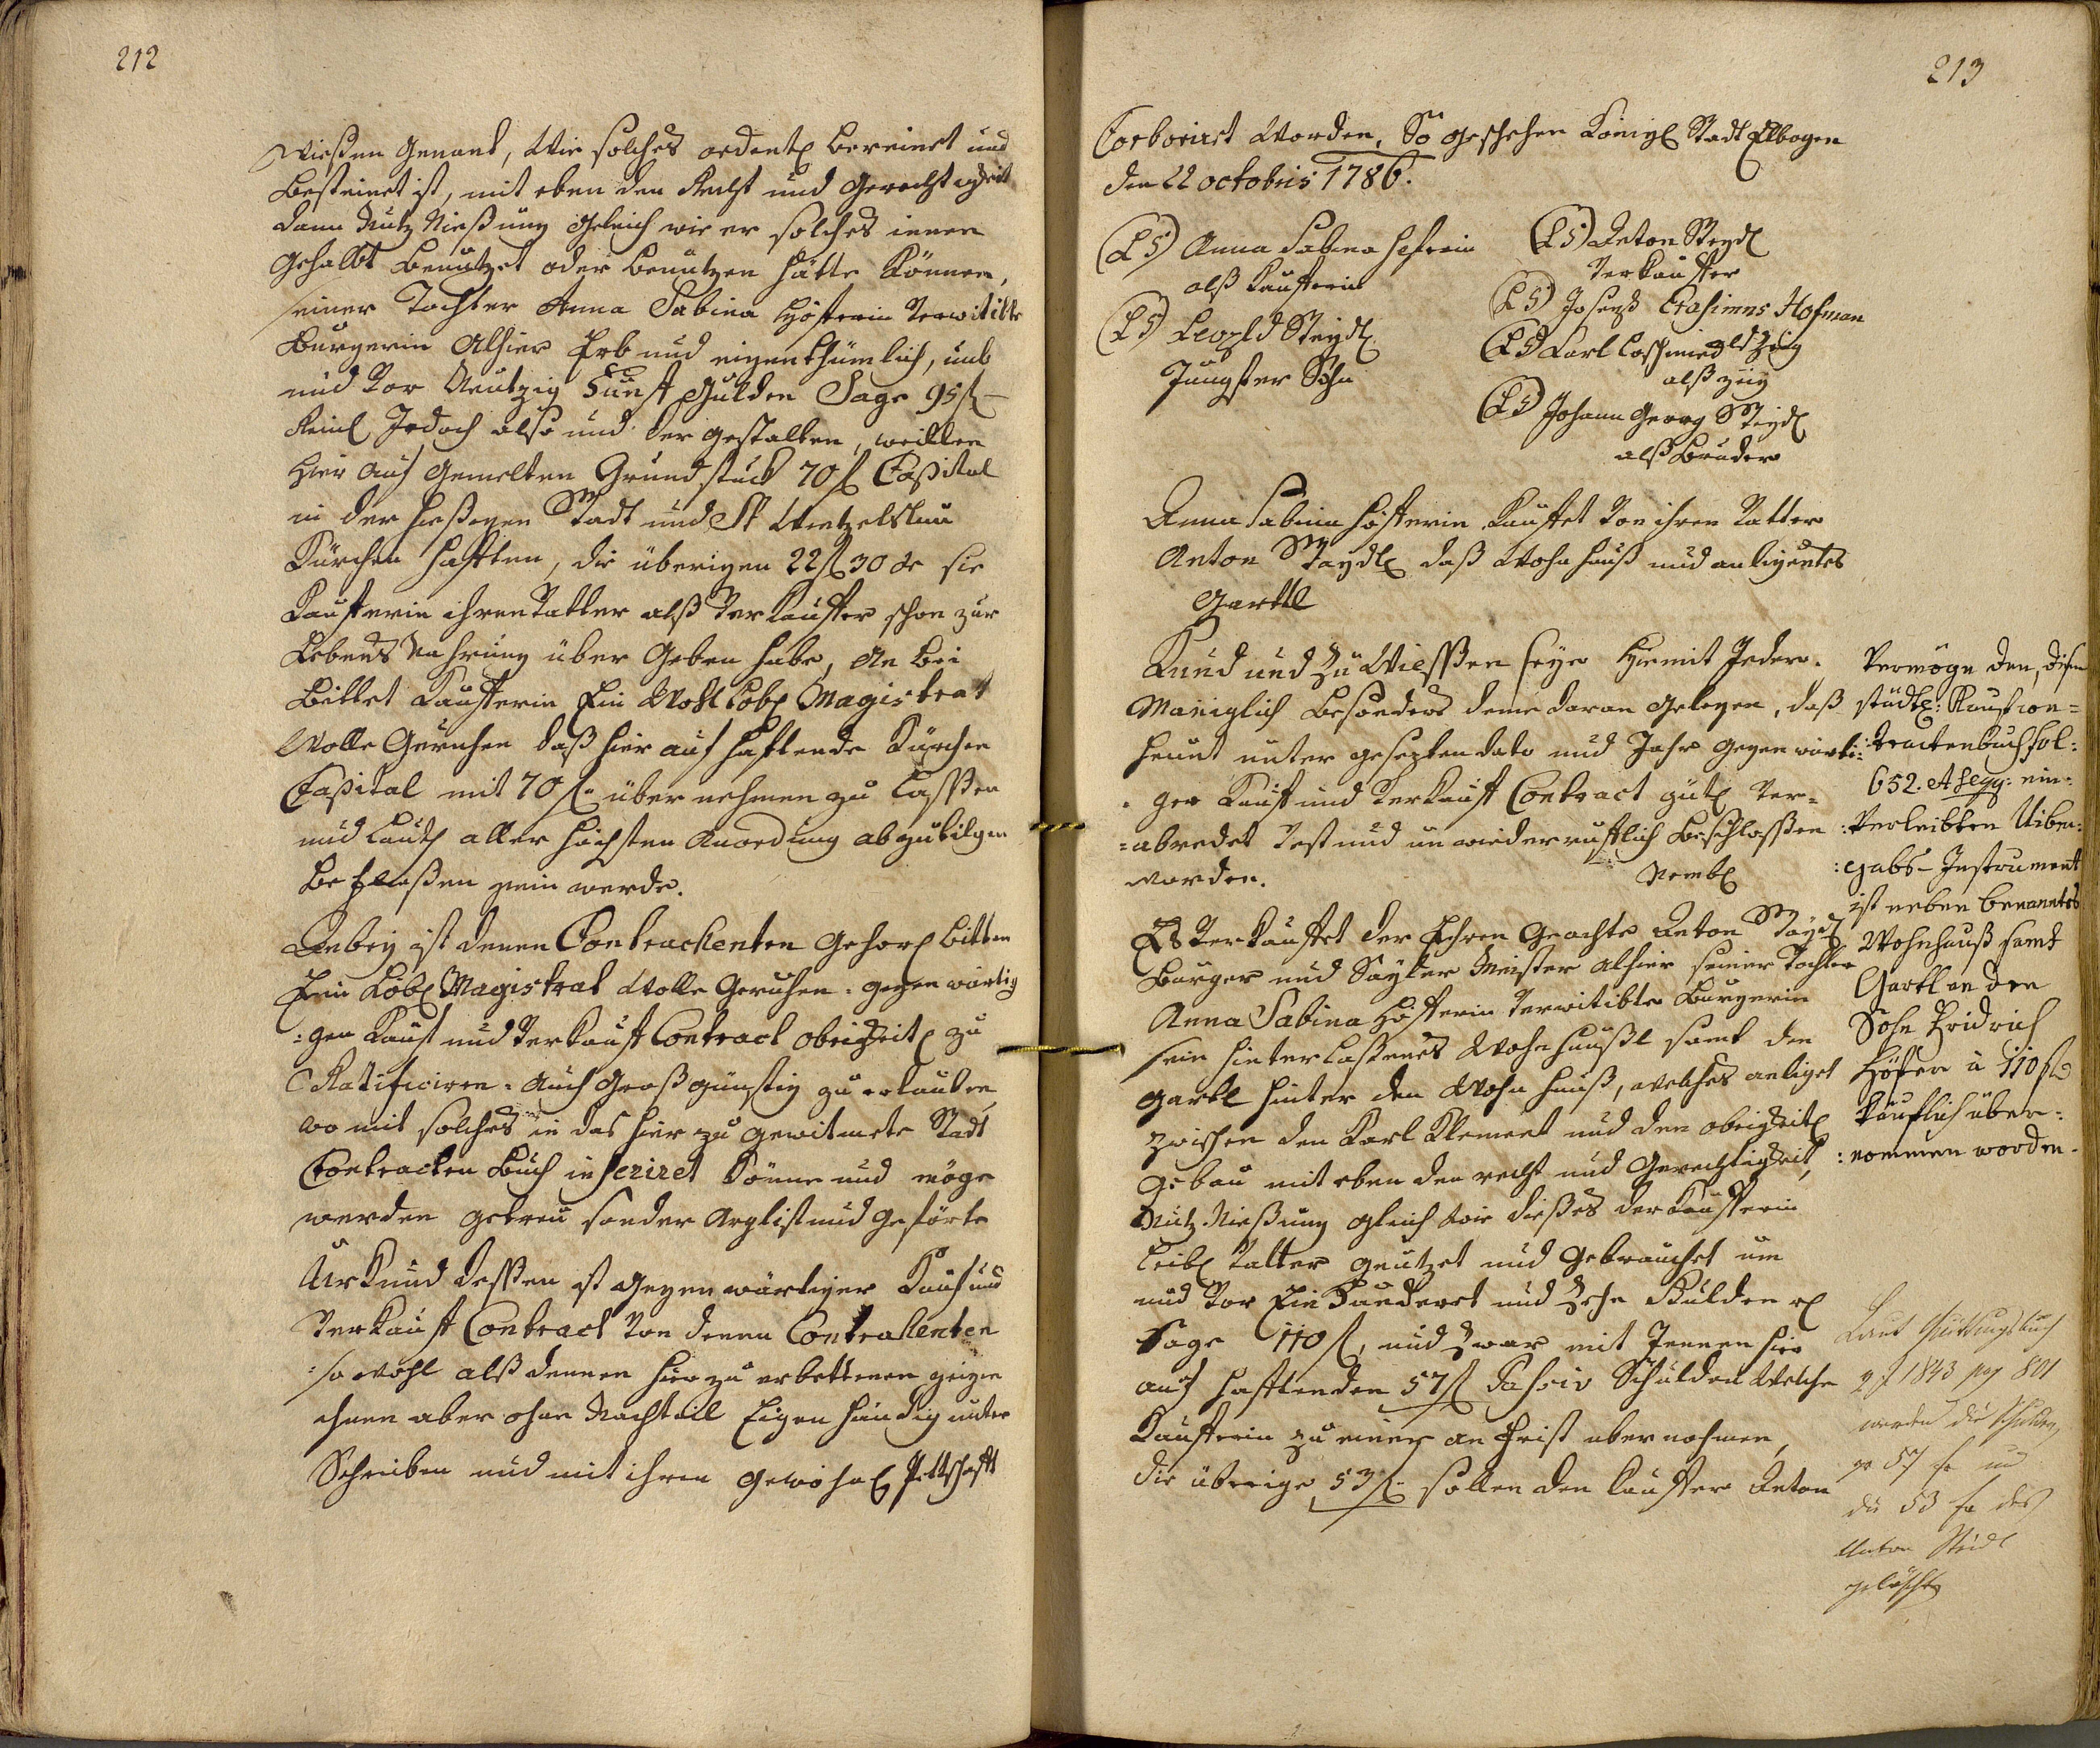 212
Wießen Genant, Wie solches ordentl bereinet und
Besteinet ist, mit eben den Recht und Gerechtigkeit
dann Nutz Nießung gleich wie er solches innen
Gehabt Benützet oder benutzen hätte Können,
seiner Tochter Anna Sabina Höfferin Verwitibte
Burgerin Alhier Erb und eigenthümlich, umb
und Vor Neutzig Fünff Gulden Sage 95 f
Reinl Jedoch also und der gestalten, weillen
Hier auf Gemelten Grundstück 70 f Capital
in der hießigen Stadt und St Wentzelslau
Kürchen hafften, die überigen 22 f 30 xr sie
Kaufferin ihren Vatter alß Verkauffer schon zur
Lebens Nahrung über Geben habe, An bei
Bittet Kaufferin Ein Wohl Lobl Magistrat
Wolle Geruhen daß hier auf haftende Kürchen
Capital mit 70 f über nehmen zu Lassen
und Lauth aller höchsten Anordung abzutilgen
befließen sein werde.
Anbey ist denen Contrackenten Gehors bitten
Ein Löbl Magistrat Wolle Geruhen gegenwärtig
:gen Kauf und Verkauff Contract obrigkeitl zu
Ratificiren. Auch Großgünstig zu erlauben
wo mit solches in das hier zu gewitmete Stadt
Contracten Buch inserirt Könne und möge
werden getreu sonder Arglist und Geförte
Urkund dessen ist Gegenwärtiger Kauf und
Verkauff Contract Von denen Contrakenten
so wohl alß dennen hier zu erbettenen zeigen
ihnen aber ohne Nachteil Eigenhändig unter
Schrieben und mit ihren gewohnl Pettschafft
213
Corborirt Worden, So geschehen Königl Stadt Elbogen
den 22 octobris 1786.
(LS) Anna Sabina Hefrin
alß Kaufferin
(LS) Leopld Steydl
Jungster Sohn
(LS) Anton Steydl
Verkauffer
(LS) Joseph Erasimus Hofman
(LS) Carl Loschmied
alß zeig
(LS) Johann Georg Steydl
alß Bruder
Anna Sabina Höfferin Kauffet Von ihren Vatter
Anton Staydl daß Wohn hauß und anligentes
Gartl
Kund und Zu Wießen seye Hiemit Jeder.
Maniglich besonders deme daran gelegen, daß
heunt unter gesezten dato und Jahr gegenwärti:
ger Kauf und Verkauff Contract gütl Ver=
=abredet Vest und unwiederrufflich beschlossen
worden. Nembl
Es Verkauffet der Ehren Geachte Anton Staydl
Burger und Sayler Meister alhier seiner Tochter
Anna Sabina Höfferin Verwitibte Burgerin
sein hinterlaßenes Wohnhäußl samt den
Gartl hinter den Wohn hauß, welches anliget
zwischen den Karl Klement und den obrigkeitl
Gebäu mit eben den recht und Gerechtigkeit,
Nutz Nießung gleich wie dießes der Kaufferin
Leibl Vatter genützet und gebrauchet um
und Vor Ein Hundert und Zehn Gulden rl
Sage 110 f, und zwar mit Jennen hier
auf hafftenden 57 f Passiv Schulden Welche
Kaufferin zu einer an Frist übernohmen,
die überige 53 f sollen den Kauffer Anton
Vermöge den, disen
städtl: Kaufcon=
:tractenbuch fol:
652. A seqq: ein:
:verleibten Uiber:
:gabs-Instrument
ist neben benanntes
Wohnhauß samt
Gartl an den
Sohn Fridrich
Höfer à 110 f
käuflich über:
:nommen worden.
Laut Quittungsbuch
1843 pg 801
werden die Schulden
pr 57 fr und
die 53 fr des
Anton Steidl
gelöscht